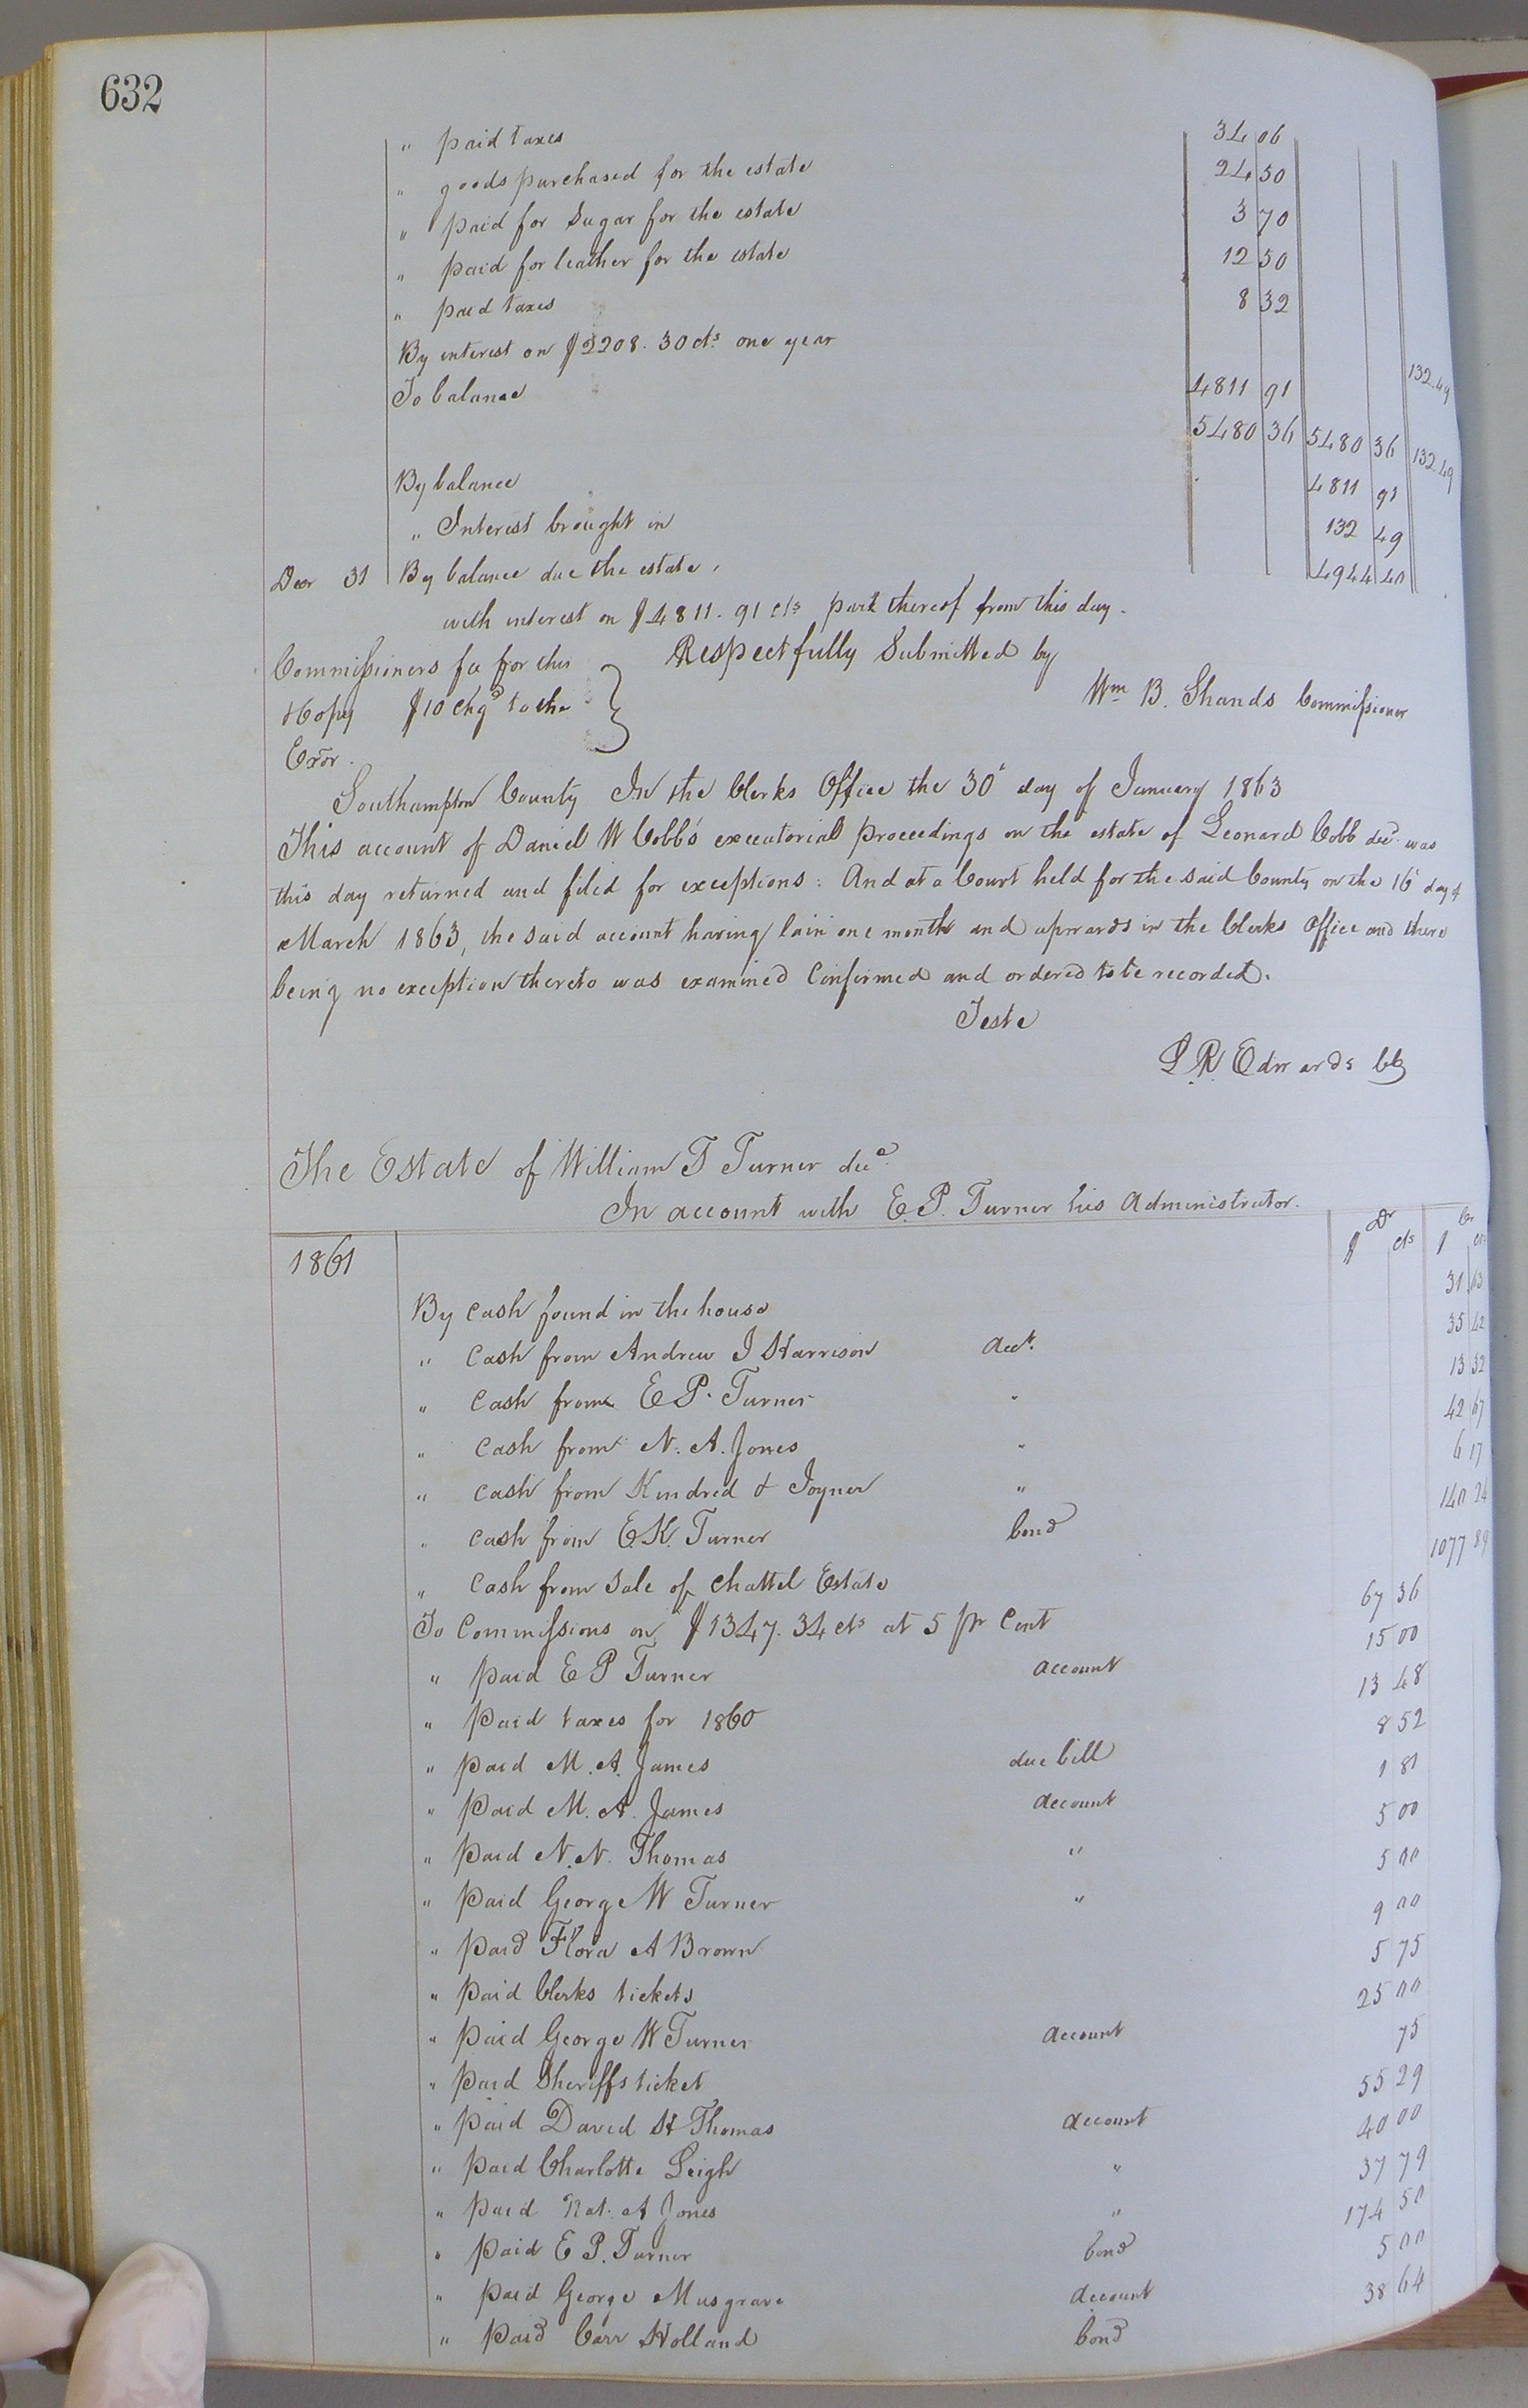 632
" paid taxes 34 06
" goods purchased for the estate 24 50
" paid for Sugar for the estate 3 70
" paid for leather for the estate 12 50
" paid taxes 8 32
By interest on $2208. 30 cts. one year 132.49
To balance 4811 91
5480 36 5480 36 132.49
By balance 4811 91
" Interest brought in 132 49
Decr 31 By balance due the estate, 4944 40
with interest on $4811. 91 cts part thereof from this day.
Commissioners fee for this Respectfully Submitted by
&Copy $10 Chgd to the Wm B. Shands Commissioner
Exor.
Southampton County In the Clerks Office the 30' day of January 1863
This account of Daniel W Cobb's executorial proceedings on the estate of Leonard Cobb decd. was
this day returned and filed for exceptions: And at a Court held for the said County on the 16' day of
March 1863, the said account having lain one month and upwards in the Clerks Office and there
being no exception thereto was examined Confirmed and ordered to be recorded.
Teste
L. R. Edwards Clk
The Estate of William T Turner decd.
In account with E. P. Turner his Administrator.
1861 Dr Cr
$ cts $ cts
By Cash found in the house 31 63
" Cash from Andrew J Harrison Acct. 35 42
" Cash from E P. Turner " 13 32
" Cash from N. A. Jones " 42 67
" Cash from Kindred & Joyner " 6 17
" Cash from E. K. Turner bond 140 24
" Cash from Sale of Chattel Estate 1077 89
To Commissions on $1347. 34 cts at 5 pr Cent 67 36
" paid E P Turner account 15 00
" paid taxes for 1860 13 48
" paid M. A. James due bill 8 52
" paid M. A. James account 1 81
" paid N. N. Thomas " 5 00
" paid George W Turner " 5 00
" paid Flora A Brown 9 00
" paid Clerks tickets 5 75
" paid George W Turner account 25 00
" paid Sheriffs ticket 75
" paid David H Thomas account 55 29
" paid Charlotte Leigh " 40 00
" paid Nat. A Jones " 37 79
" paid E P. Turner bond 174 50
" paid George Musgrave account 5 00
" paid Carr Holland bond 38 64